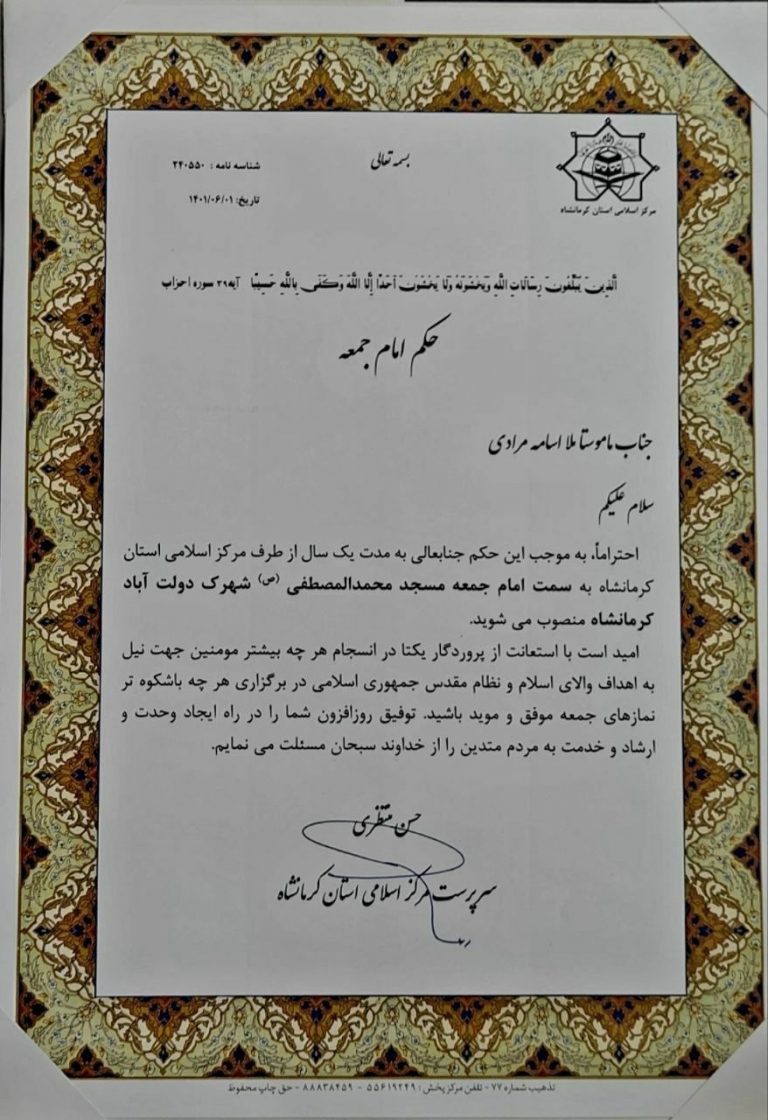 بسمه تعالی
شناسه نامه : ۲۴۰۵۵۰
تاریخ: ۱۴۰۱/۰۶/۰۱
مرکز اسلامی استان کرمانشاه
الَّذِينَ يُبَلِّغُونَ رِسَالَاتِ اللَّهِ وَيَخْشَوْنَهُ وَلَا يَخْشَوْنَ أَحَدًا إِلَّا اللَّهَ وَكَفَى بِاللَّهِ حَسِيبًا آیه ۳۹ سوره احزاب
حکم امام جمعه
جناب ماموستا ملا اسامه مرادی
سلام علیکم
احتراماً، به موجب این حکم جنابعالی به مدت یک سال از طرف مرکز اسلامی استان
کرمانشاه به سمت امام جمعه مسجد محمدالمصطفی (ص) شهرک دولت آباد
کرمانشاه منصوب می شوید.
امید است با استعانت از پروردگار یکتا در انسجام هر چه بیشتر مومنین جهت نیل
به اهداف والای اسلام و نظام مقدس جمهوری اسلامی در برگزاری هر چه باشکوه تر
نمازهای جمعه موفق و موید باشید. توفیق روزافزون شما را در راه ایجاد وحدت و
ارشاد و خدمت به مردم متدین را از خداوند سبحان مسئلت می نمایم.
حسن منتظری
سرپرست مرکز اسلامی استان کرمانشاه
تذهیب شماره ۷۷ - تلفن مرکز پخش : ۵۵۶۱۹۲۴۹ - ۸۸۸۳۸۴۵۹ - حق چاپ محفوظ